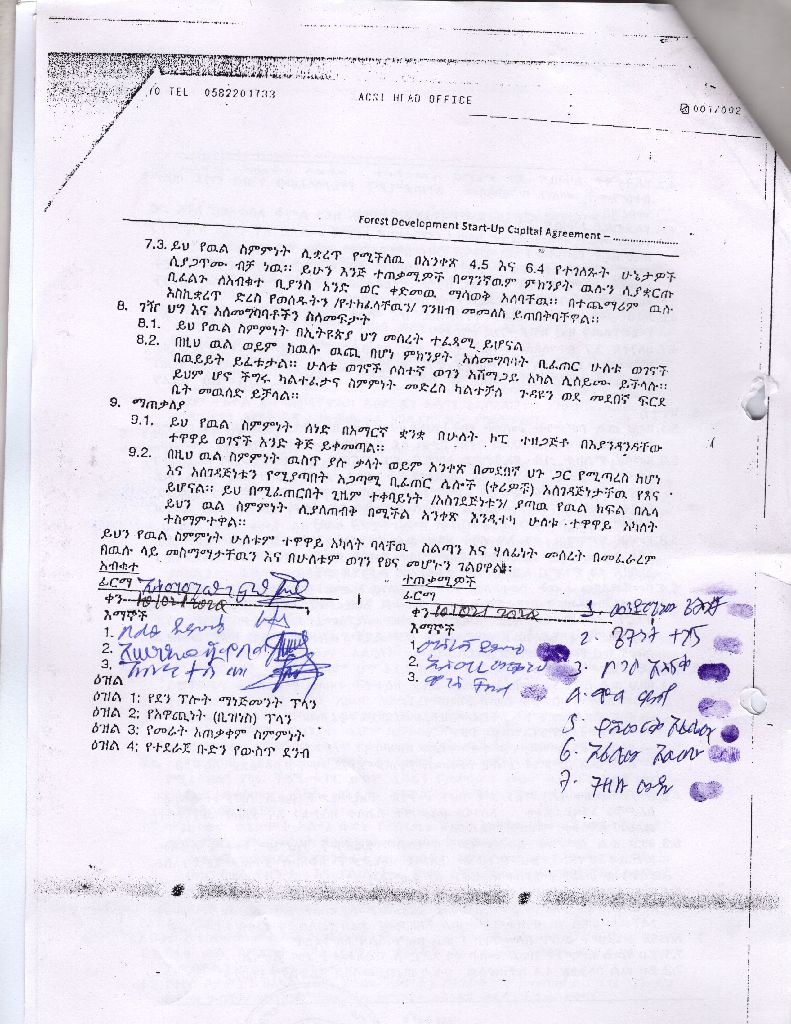 TEL 0582201733
ACSI HEAD OFFICE
001/002
Forest Development Start-Up Capital Agreement – ......................
7.3. ይህ የዉል ስምምነት ሊቋረጥ የሚችለዉ በአንቀጽ 4.5 እና 6.4 የተገለጹት ሁኔታዎች
ሲያጋጥሙ ብቻ ነዉ። ይሁን እንጅ ተጠቃሚዎች በማንኛዉም ምክንያት ዉሉን ሊያቋርጡ
ቢፈልጉ ለአብቁተ ቢያንስ አንድ ወር ቀድመዉ ማሳወቅ አለባቸዉ። በተጨማሪም ዉሉ
እስኪቋረጥ ድረስ የወሰዱትን /የተከፈላቸዉን/ ገንዘብ መመለስ ይጠበቅባቸዋል።
8. ገዥ ህግ እና አለመግባባቶችን ስለመፍታት
8.1. ይህ የዉል ስምምነት በኢትዮጵያ ህግ መሰረት ተፈጻሚ ይሆናል
8.2. በዚህ ዉል ወይም ከዉሉ ዉጪ በሆነ ምክንያት አለመግባባት ቢፈጠር ሁለቱ ወገኖች
በዉይይት ይፈቱታል። ሁለቱ ወገኖች ሶስተኛ ወገን አሸማጋይ አካል ሊሰይሙ ይችላሉ።
ይህም ሆኖ ችግሩ ካልተፈታና ስምምነት መድረስ ካልተቻለ ጉዳዩን ወደ መደበኛ ፍርድ
ቤት መዉሰድ ይቻላል።
9. ማጠቃለያ
9.1. ይህ የዉል ስምምነት ሰነድ በአማርኛ ቋንቋ በሁለት ኮፒ ተዘጋጅቶ በእያንዳንዳቸው
ተዋዋይ ወገኖች እንድ ቅጅ ይቀመጣል።
9.2. በዚህ ዉል ስምምነት ዉስጥ ያሉ ቃላት ወይም አንቀጽ በመደበኛ ህጉ ጋር የሚጣረስ ከሆነ
እና አስገዳጅነቱን የሚያጣበት አጋጣሚ ቢፈጠር ሌሎች (ቀሪዎቹ) አስገዳጅነታቸዉ የጸና
ይሆናል። ይህ በሚፈጠርበት ጊዜም ተቀባይነት /አስገዳጅነቱን/ ያጣዉ የዉል ክፍል በሌላ
ይህን ዉል ስምምነት ሊያለጠብቅ በሚችል አንቀጽ እንዲተካ ሁለቱ ተዋዋይ አካላት
ተስማምተዋል።
ይህን የዉል ስምምነት ሁለቱም ተዋዋይ አካላት ባላቸዉ ስልጣን እና ሃላፊነት መሰረት በመፈራረም
በዉሉ ላይ መስማማታቸዉን እና በሁለቱም ወገን የፀና መሆኑን ገልፀዋል።
አብቁተ
ተጠቃሚዎች
ፊርማ
ፊርማ
ቀን
ቀን
እማኞች
እማኞች
1.
1.
2.
2.
3.
3.
2. ተሻ
3.
5.
6.
7.
ዕዝል
ዕዝል 1: የደን ፕሎት ማነጅመንት ፕላን
ዕዝል 2: የአዋጪነት (ቢዝነስ) ፕላን
ዕዝል 3: የመሬት አጠቃቀም ስምምነት
ዕዝል 4: የተደራጀ ቡድን የውስጥ ደንብ